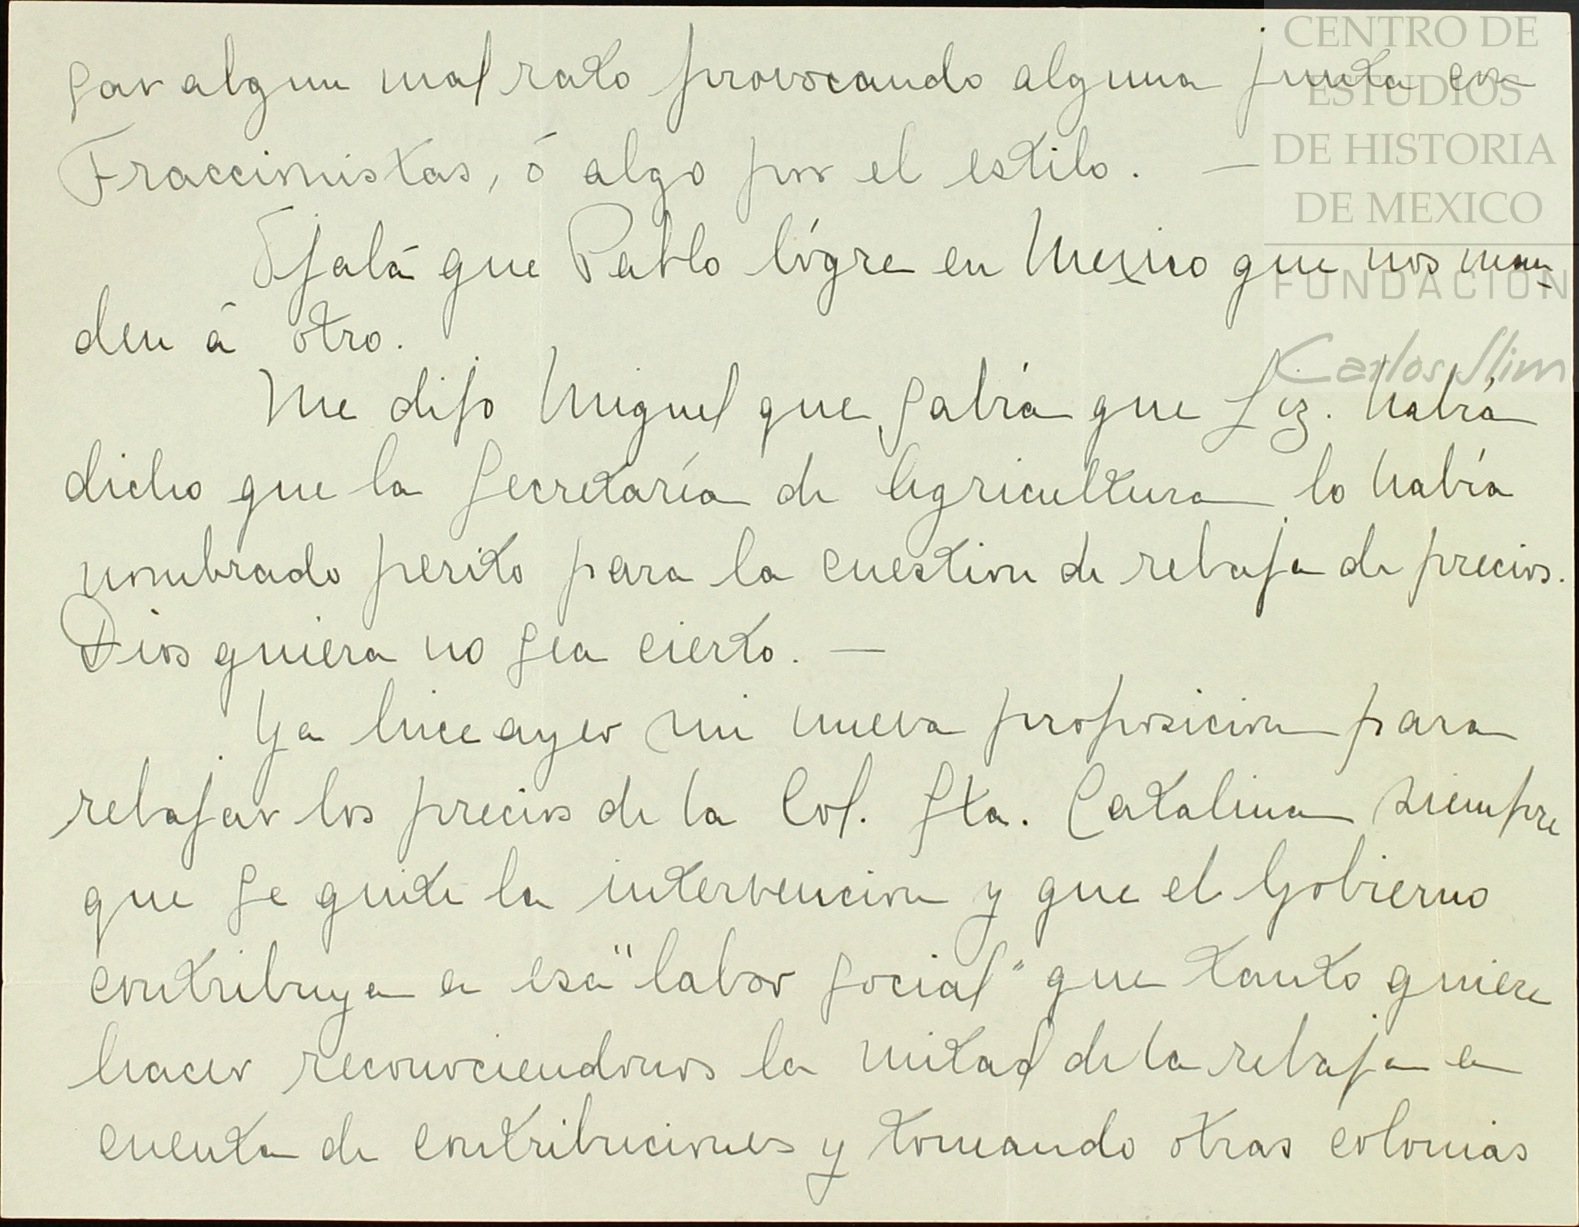 sar algun mal rato provocando alguna junta con
CENTRO DE
ESTUDIOS
DE HISTORIA
DE MEXICO
FUNDACION
Carlos Slim
Fraccionistas, ó algo por el estilo. —
Ojalá que Pablo lógre en Mexico que nos man-
den á otro.
Me dijo Miguel que sabía que Liz. habrá
dicho que la Secretaría de Agricultura lo había
nombrado perito para la cuestion de rebaja de precios.
Dios quiera no sea cierto. —
Ya hice ayer mi nueva proposicion para
rebajar los precios de la Col. Sta. Catalina siempre
que se quite la intervencion y que el Gobierno
contribuya a esa "labor social" que tanto quiere
hacer reconociendonos la mitad de la rebaja a
cuenta de contribuciones y tomando otras colonias